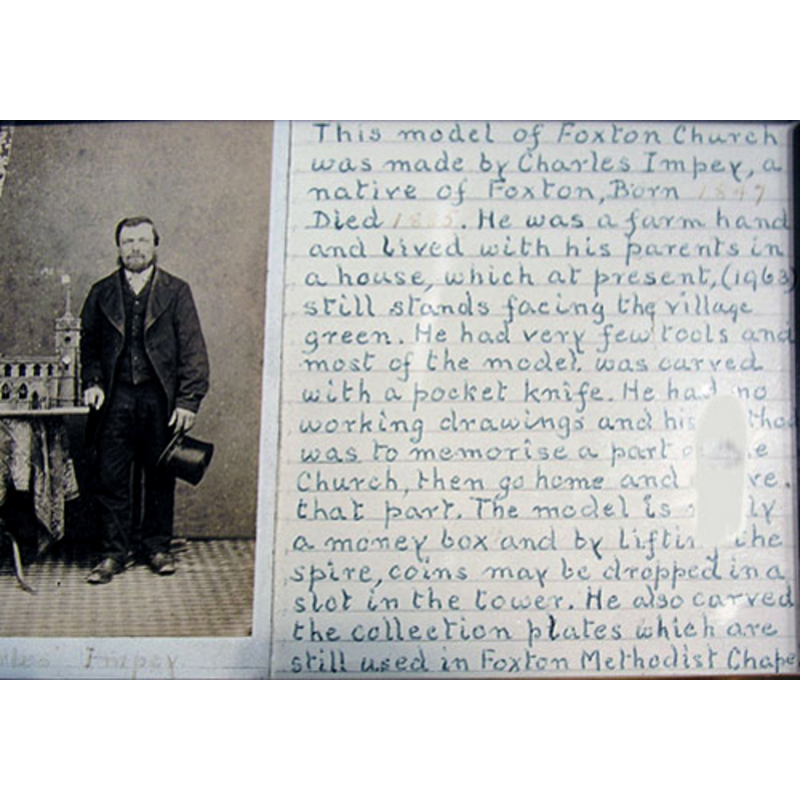 This model of Foxton Church
was made by Charles Impey, a
native of Foxton, Born 1847
Died 1885. He was a farm hand
and lived with his parents in
a house, which at present, (1963)
still stands facing the village
green. He had very few tools and
most of the model was carved
with a pocket knife. He had no
working drawings and his
was to memorise a part
Church, then go home and
that part. The model is
a money box and by lifting the
spire, coins may be dropped in a
slot in the tower. He also carved
the collection plates which are
still used in Foxton Methodist
Impey